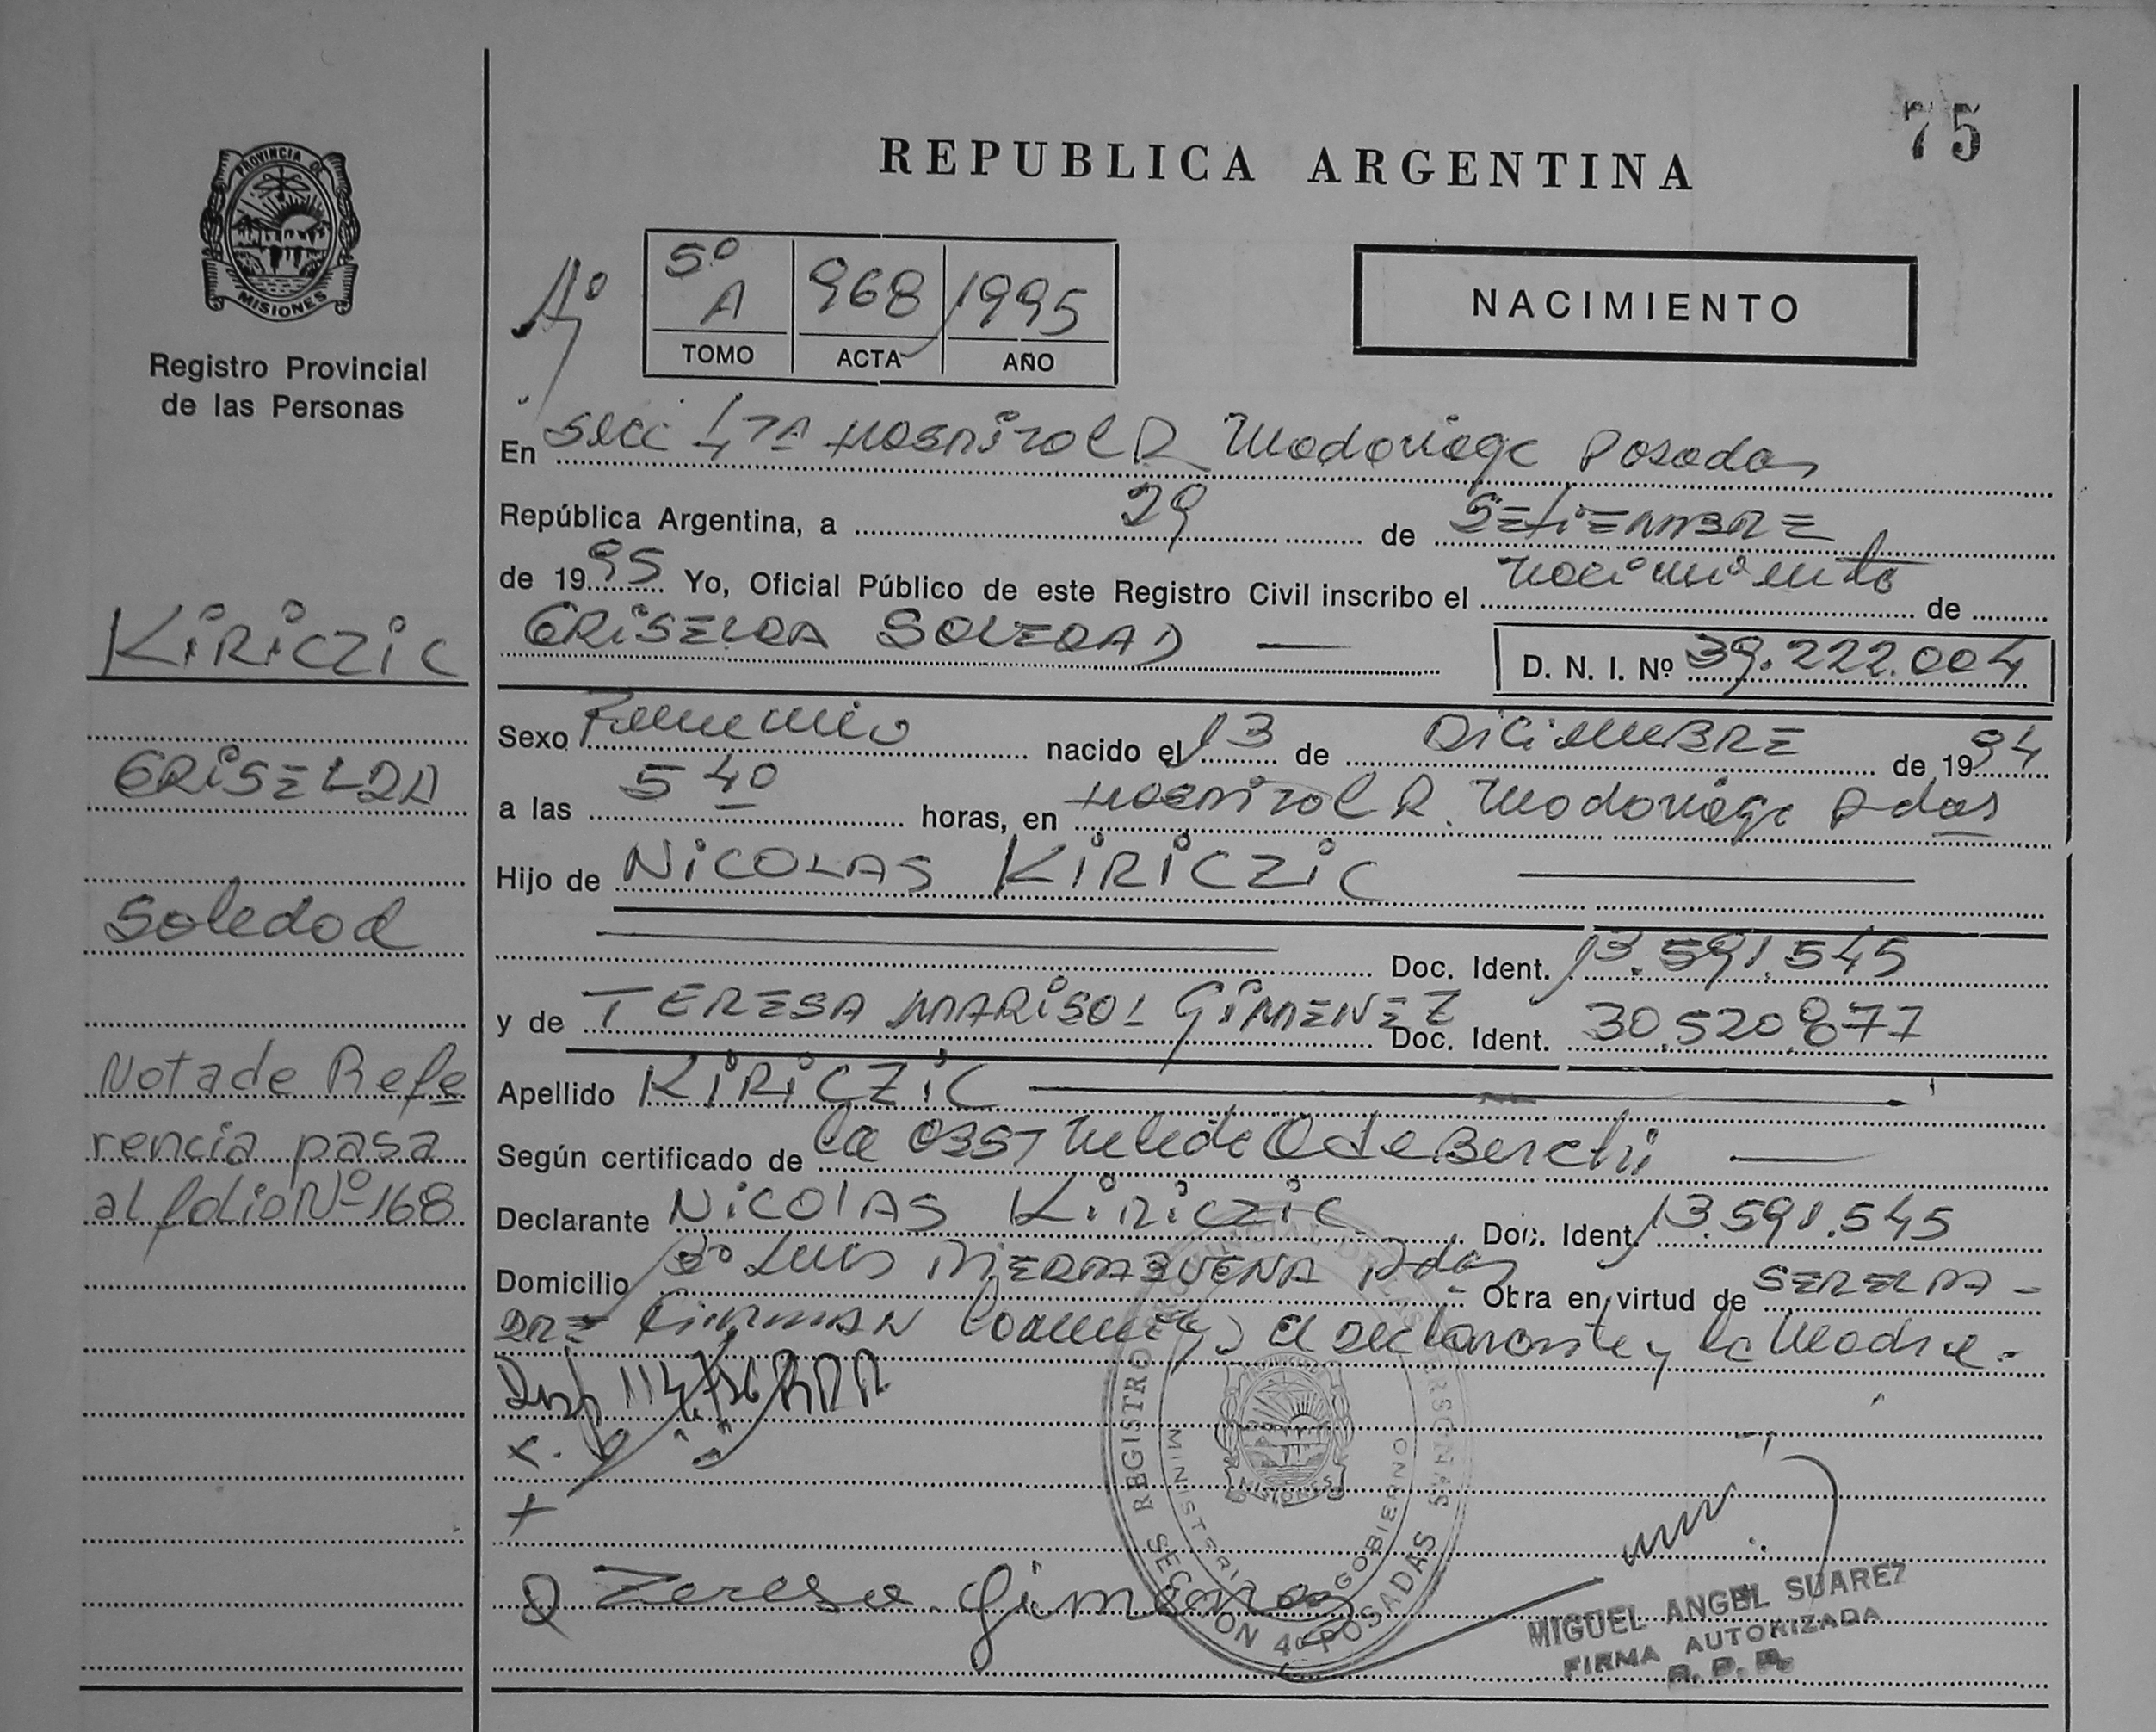 75
REPUBLICA ARGENTINA
PROVINCIA DE
MISIONES
Registro Provincial
de las Personas
5º A 968 1995
TOMO ACTA AÑO
NACIMIENTO
En Secc 4TA Hospital R Madariaga Posadas
República Argentina, a 29 de SETIEMBRE
de 1995 Yo, Oficial Público de este Registro Civil inscribo el nacimiento de
GRISELDA SOLEDAD D. N. I. Nº 39.222.004
KIRICZIC
GRISELDA
Soledad
Nota de Refe
rencia pasa
al folio Nº 168
Sexo Femenino nacido el 13 de DICIEMBRE de 1994
a las 5 40 horas, en Hospital R. Madariaga Pdas
Hijo de NICOLAS KIRICZIC
Doc. Ident. 13.591.545
y de TERESA MARISOL GIMENEZ Doc. Ident. 30.520.877
Apellido KIRICZIC
Según certificado de la OBST
Declarante NICOLAS KIRICZIC Doc. Ident. 13.591.545
Domicilio Bº Luis PIEDRABUENA Pdas Obra en virtud de SER EL PA-
DRE FIRMAN el declarante y la Madre.-
REGISTRO PROVINCIAL DE LAS PERSONAS
MINISTERIO GOBIERNO
MISIONES
SECCION 4º POSADAS
Teresa Gimenez
MIGUEL ANGEL SUAREZ
FIRMA AUTORIZADA
R. P. P.